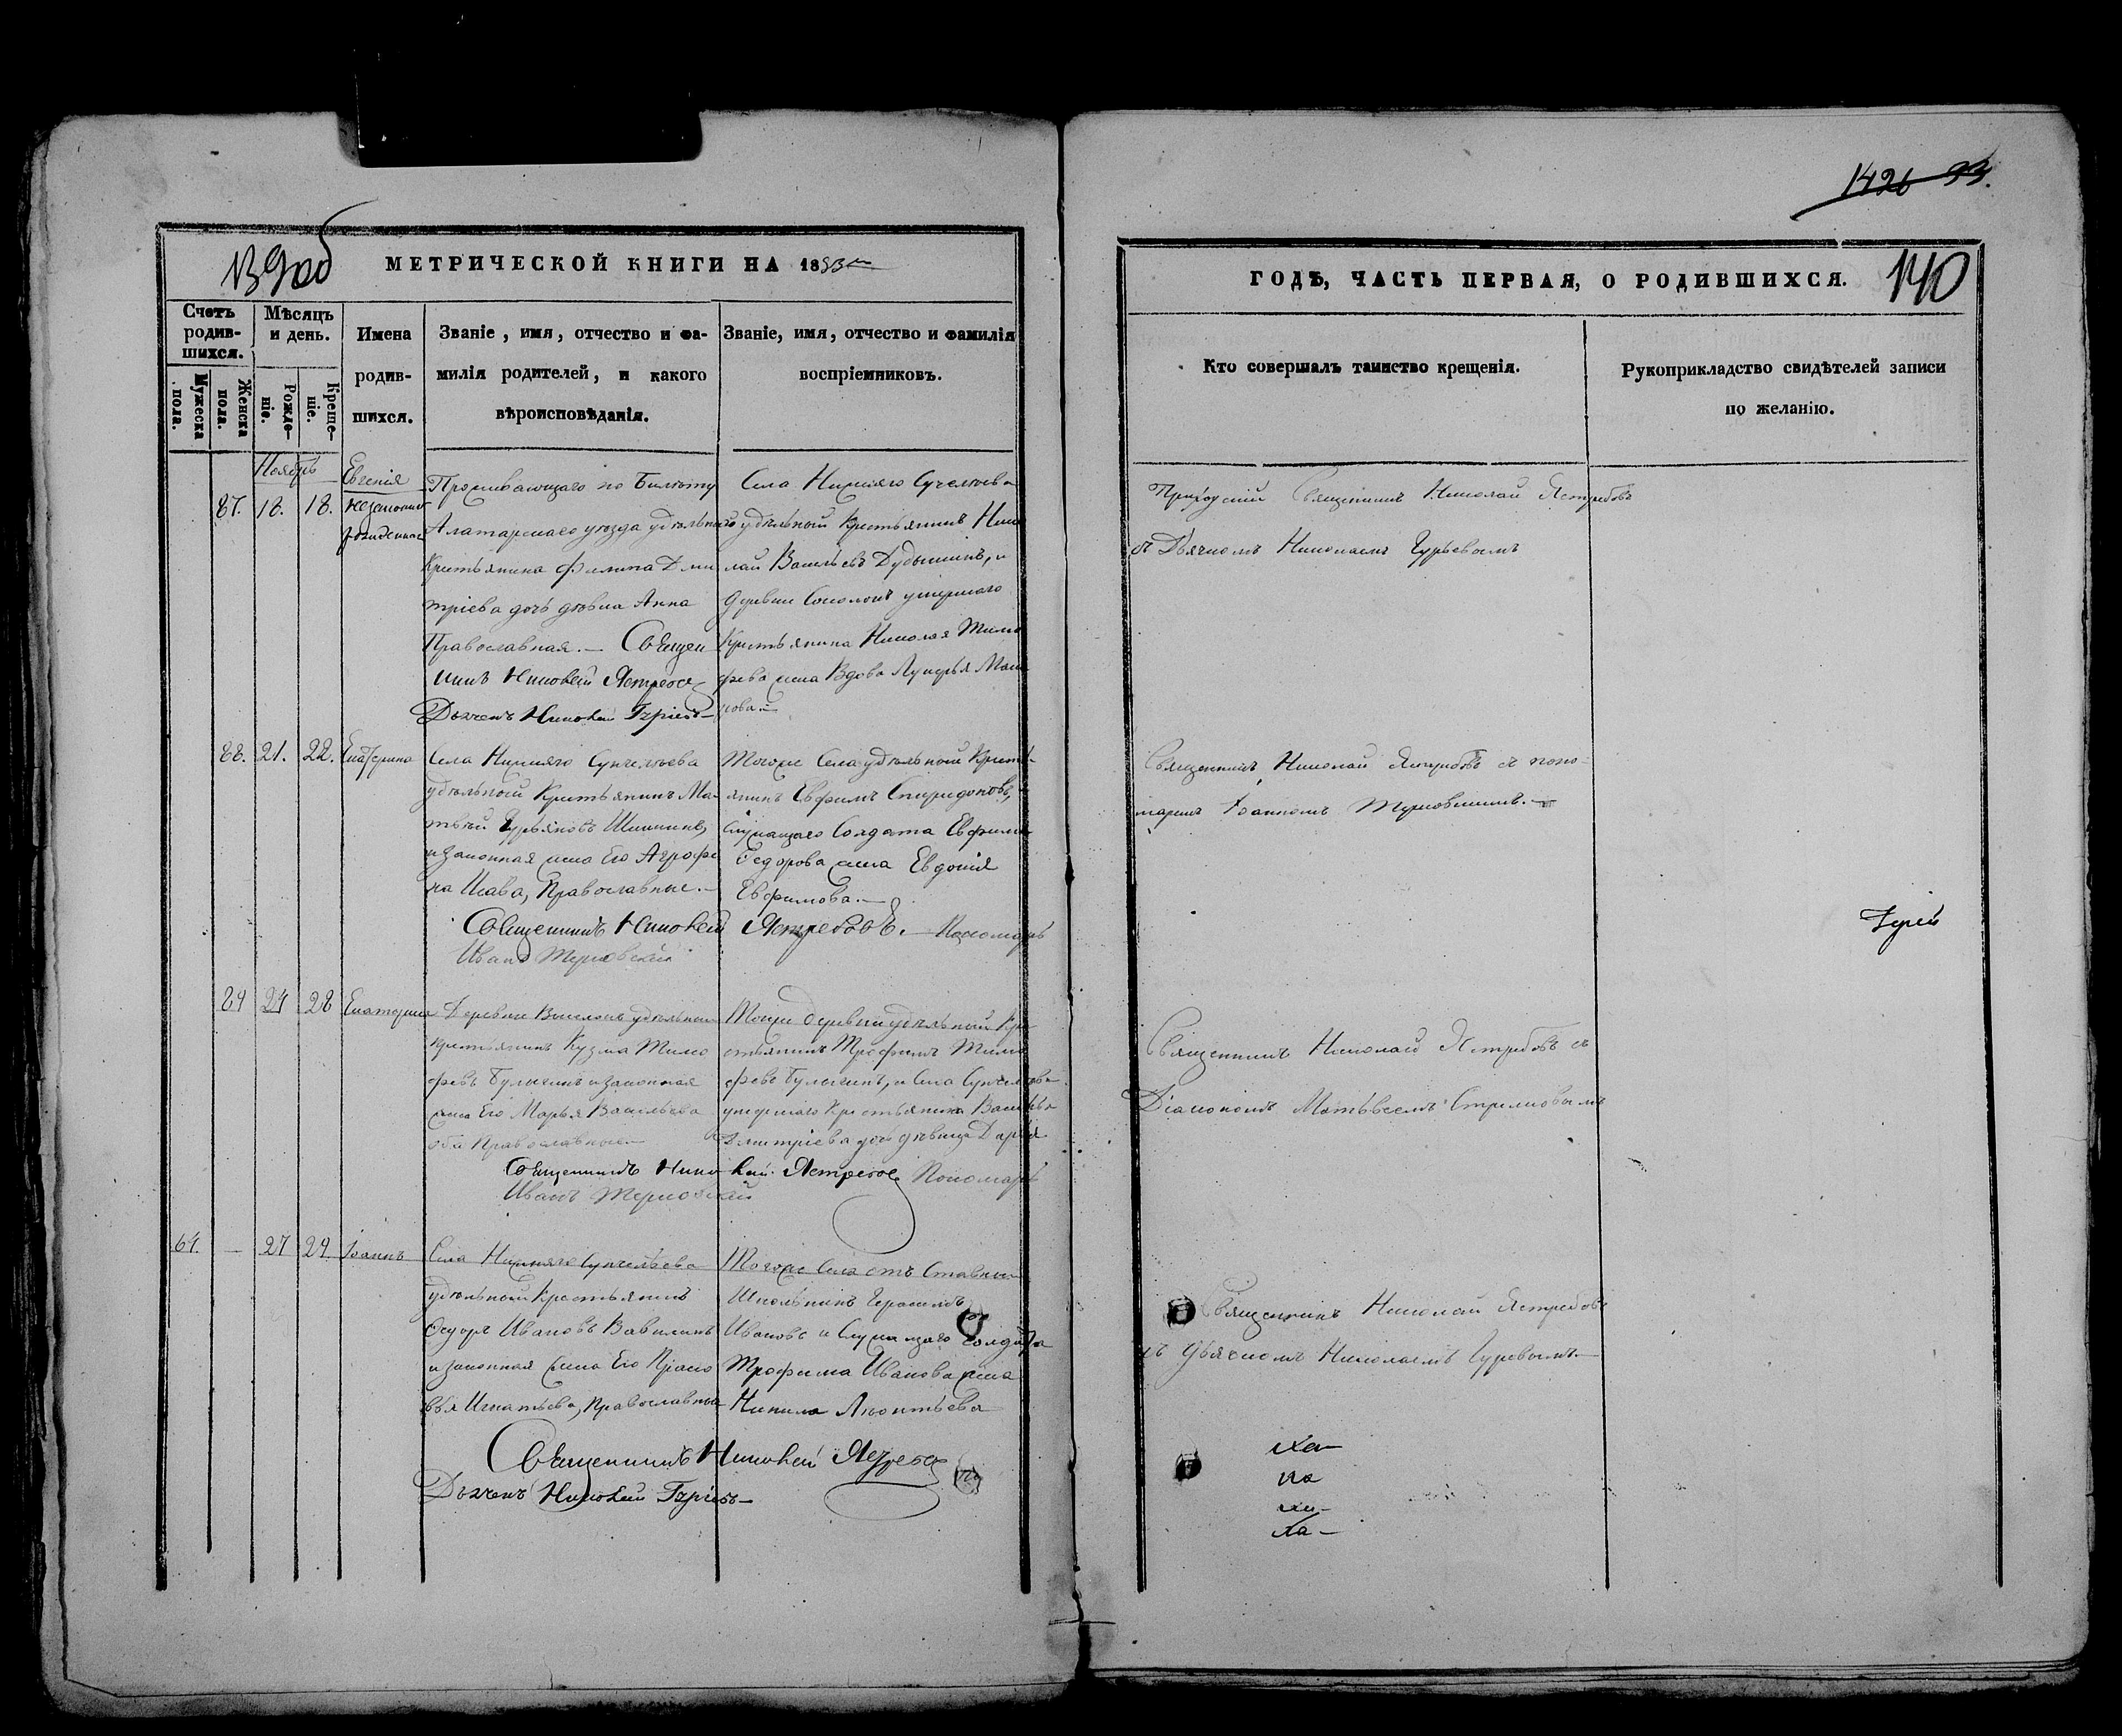 139об
МЕТРИЧЕСКОЙ КНИГИ НА 1853
Счетъ родив-шихся.
Мѣсяцъ и день.
Имена родив-шихся.
Званіе, имя, отчество и фа-милія родителей, и какого вѣроисповѣданія.
Званіе, имя, отчество и фамилія воспріемниковъ.
Мужеска пола.
Женска пола.
Рожде-ніе.
Креще-ніе.
Ноябрь
87. 18. 18.
Евгенія
незаконно
рожденная
Проживающаго по билету
Алатарскаго уѣзда удѣльнаго
Крестьянина Филипа Дми
тріева дочь дѣвка Анна
Православная. — Священ
никъ Николай Ястребов
Дьячекъ Николай Гурьевъ
Села Нижняго
удѣльный Крестьянинъ Нико
лай Васильевъ Дубынинъ, и
деревни умершаго
Крестьянина Николая Тимо
фева жена Вдова Лукерья Мак
88. 21. 22. Екатерина
Села Нижняго
удѣльной Крестьянинъ Ма-
твѣй Гурьяновъ
и законная жена Его Агрофе
на Православные.
Священникъ Николай Ястребовъ. Пономарь
Иванъ Терновскій
Тогоже Села удѣльной Кресть-
янинъ Евфимъ Спиридоновъ,
Служащаго Солдата Евфима
Федорова жена Евдокія
Евфимова.
89 24 28 Екатерина
Деревни удѣльной
крестьянинъ Кузма Тимо
февъ Булыгинъ и законная
жена Его Марья Васильева
оба Православные
Священникъ Николай Ястребов Пономарь
Иванъ Терновскій
Тоже деревни удѣльный Кре
стьянинъ Трофимъ Тимо
февъ Булыгинъ, и Села
умершаго Крестьянина Василья
Дмитріева дочь дѣвица Дарья
64. — 27 29 Іоаннъ
Села Нижняго
удѣльной Крестьянинъ
Федоръ Ивановъ Вавилинъ
и законная жена Его Праско
вья Игнатьева, православные
Священникъ Николай Ястребов
Дьячекъ Николай Гурьевъ
Тогоже Села отъ Ставной
Школьникъ Герасимъ
Ивановъ и Служащаго Солдата
Трофима Иванова жена
Ненила Леонтьева
1426 93.
140
ГОДЪ, ЧАСТЬ ПЕРВАЯ, О РОДИВШИХСЯ.
Кто совершалъ таинство крещенія.
Рукоприкладство свидѣтелей записи по желанію.
Приходскій Священникъ Николай Ястребовъ
съ Дьячкомъ Николаемъ Гурьевымъ
Священникъ Николай Ястребовъ съ поно-
маремъ Іоанномъ Терновскимъ.
Іерей
Священникъ Николай Ястребовъ съ
Діакономъ Матвѣемъ Стрелковымъ
Священникъ Николай Ястребовъ
съ Дьячкомъ Николаемъ Гурьевымъ